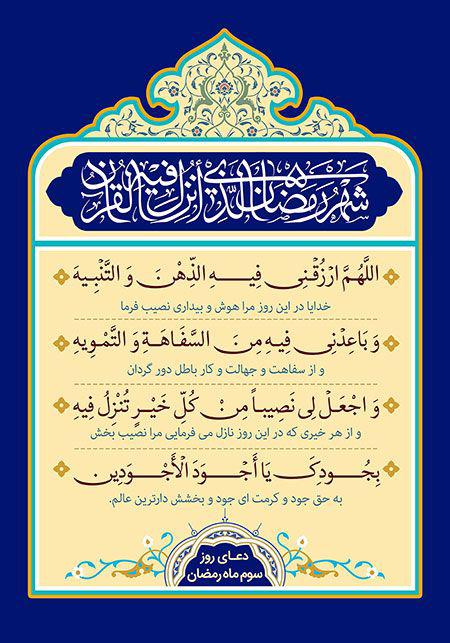 شَهْرُ رَمَضَانَ الَّذِي أُنْزِلَ فِيهِ الْقُرْآنُ
اللَّهُمَّ ارْزُقْنِی فِیهِ الذِّهْنَ وَ التَّنْبِیهَ
خدایا در این روز مرا هوش و بیداری نصیب فرما
وَ بَاعِدْنِی فِیهِ مِنَ السَّفَاهَةِ وَ التَّمْوِیهِ
و از سفاهت و جهالت و کار باطل دور گردان
وَ اجْعَلْ لِی نَصِیباً مِنْ کُلِّ خَیْرٍ تُنْزِلُ فِیهِ
و از هر خیری که در این روز نازل می فرمایی مرا نصیب بخش
بِجُودِکَ یَا أَجْوَدَ الْأَجْوَدِینَ
به حق جود و کرمت ای جود و بخشش دارترین عالم.
دعای روز
سوم ماه رمضان